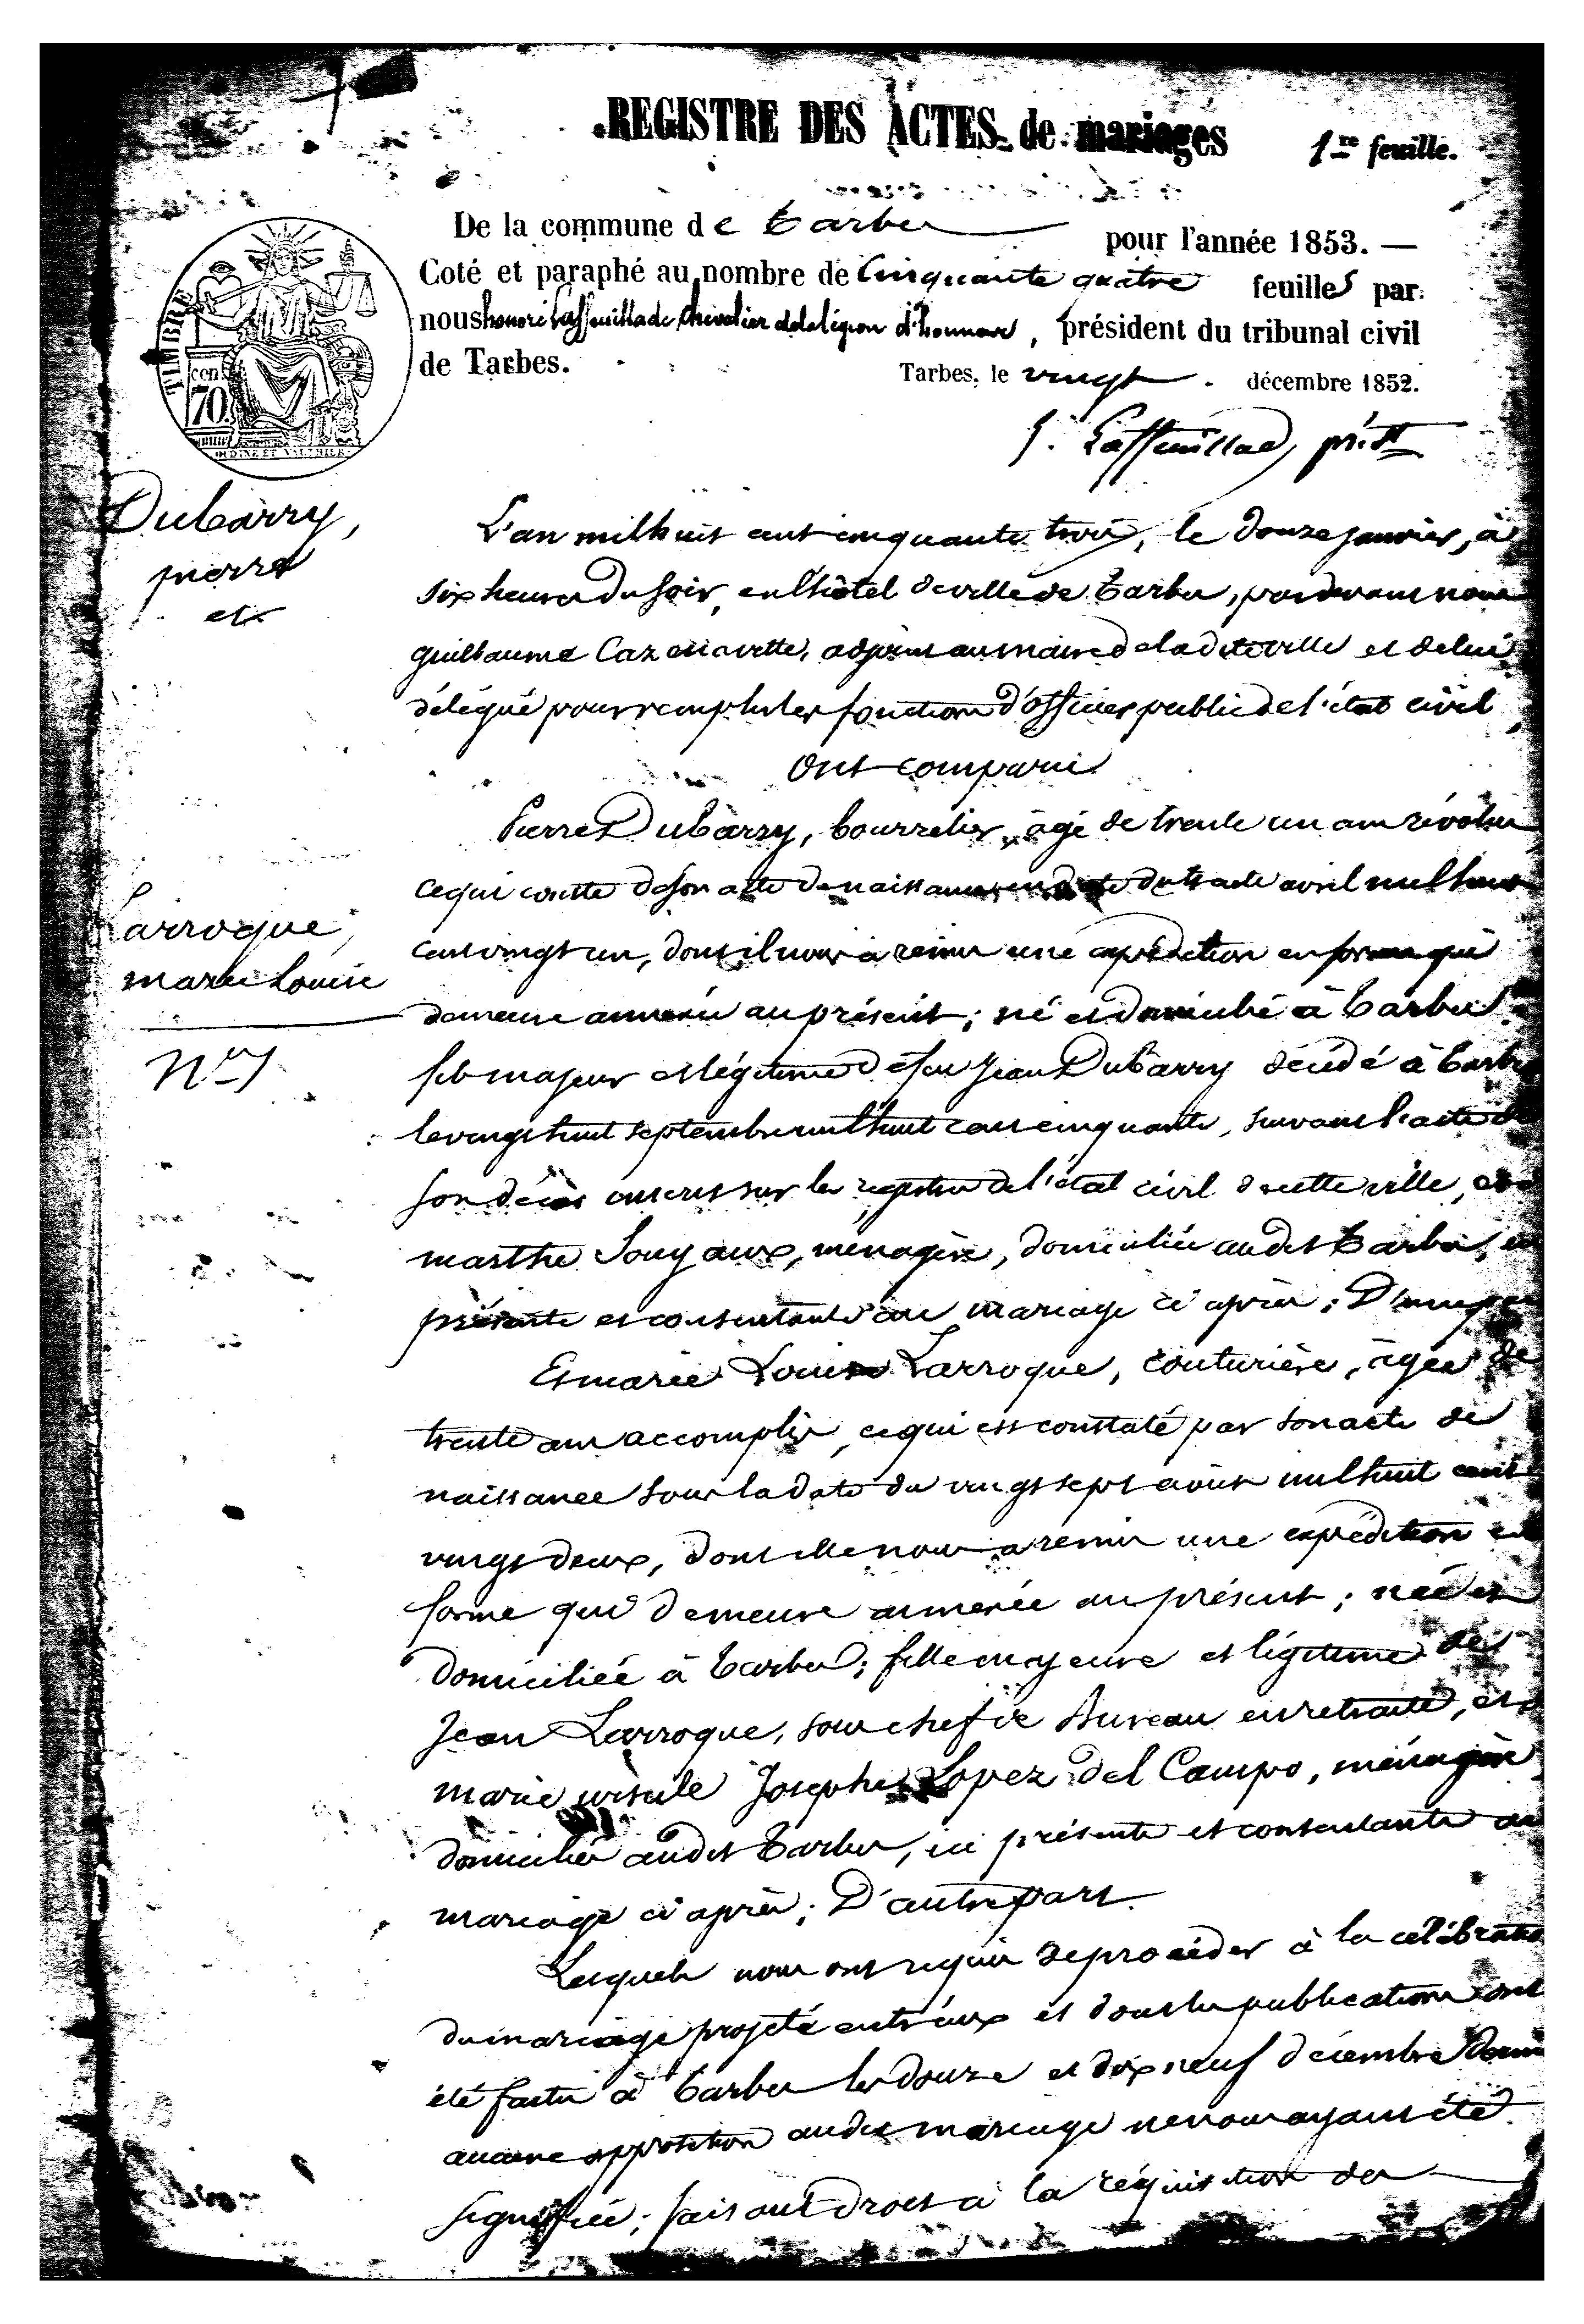 REGISTRE DES ACTES de mariages
1re feuille.
De la commune de Tarbes pour l'année 1853. —
Coté et paraphé au nombre de Cinquante quatre feuilles par
nous honoré Laffeuillade, Chevalier de la légion d'honneur, président du tribunal civil
de Tarbes.
Tarbes, le vingt décembre 1852.
Laffeuillade, prést
TIMBRE
cent
70.
OUDINE ET
Dubarry,
pierre
et
Larroque,
marie Louise
No 1
L'an mil huit cent cinquante trois, le douze janvier, à
six heures du soir, en l'hôtel de ville de Tarbes, pardevant nous
guillaume Cazenavette, adjoint au maire de la dite ville et de lui
délégué pour remplir les fonctions d'officier public de l'état civil
Ont comparu
Pierre Dubarry, bourrelier, âgé de trente un ans révolus
ce qui conste de son acte de naissance en date du trente avril mil huit
cent vingt un, dont il nous a remis une expédition en forme qui
demeure annexée au présent; né et domicilié à Tarbes
fils majeur et légitime de feu Jean Dubarry décédé à Tarbes
le vingt huit septembre mil huit cent cinquante, suivant l'acte de
son décès inscrit sur les registres de l'état civil de cette ville, et
marthe Souyaux, ménagère, domiciliée audit Tarbes,
présente et consentante au mariage ci après; D'une part
Et marie Louise Larroque, couturière, âgée de
trente ans accomplis, ce qui est constaté par son acte de
naissance sous la date du vingt sept août mil huit cent
vingt deux, dont elle nous a remis une expédition en
forme qui demeure annexée au présent; née et
domiciliée à Tarbes; fille majeure et légitime de
Jean Larroque, sous chef de Bureau en retraite, et
marie ursule Josephe Lopez del Campo, ménagère
domiciliés audit Tarbes, ici présente et consentante au
mariage ci après; D'autre part.
Lesquels nous ont requis de procéder à la célébration
du mariage projeté entr'eux et dont les publications ont
été faites à Tarbes les douze et dix neuf décembre dernier
aucune opposition audit mariage ne nous ayant été
signifiée; faisant droit à la réquisition des